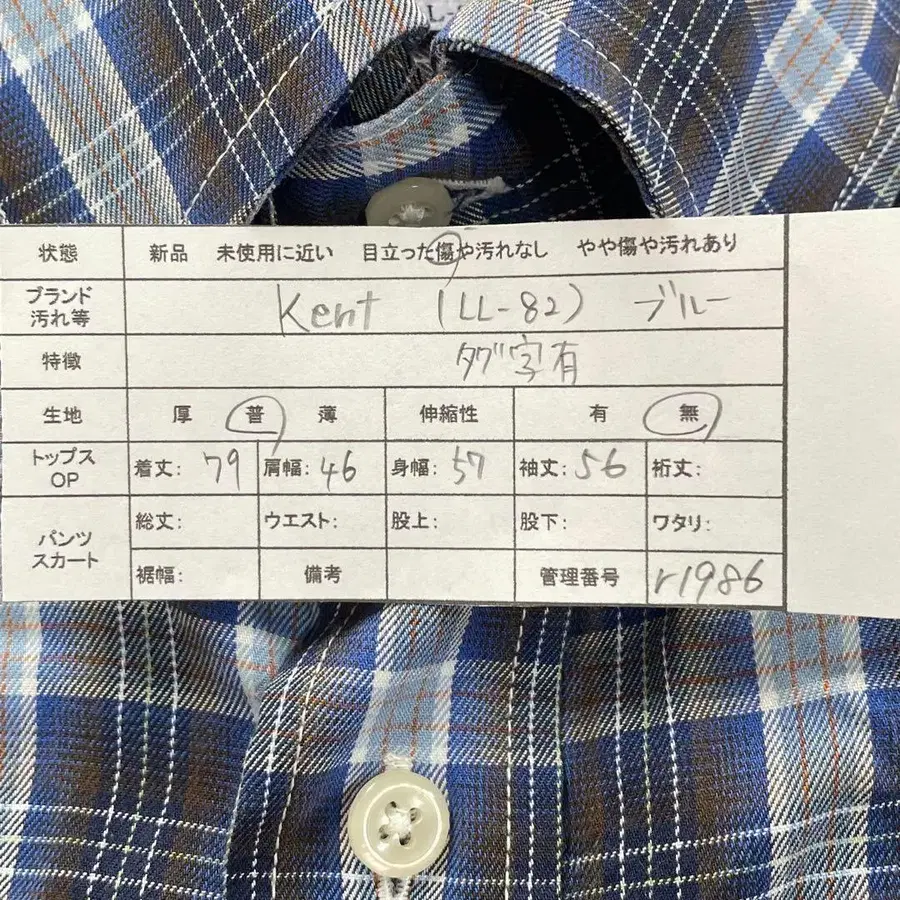 L
状態 新品 未使用に近い 目立った傷や汚れなし やや傷や汚れあり
ブランド 汚れ等 Kent (LL-82) ブルー
特徴 タグ字有
生地 厚 普 薄 伸縮性 有 無
トップス OP 着丈: 79 肩幅: 46 身幅: 57 袖丈: 56 裄丈:
パンツ スカート 総丈: ウエスト: 股上: 股下: ワタリ:
裾幅: 備考 管理番号 r1986